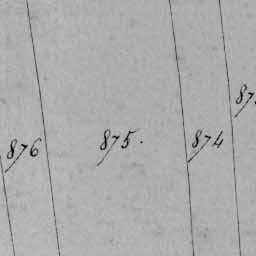 876
875.
874